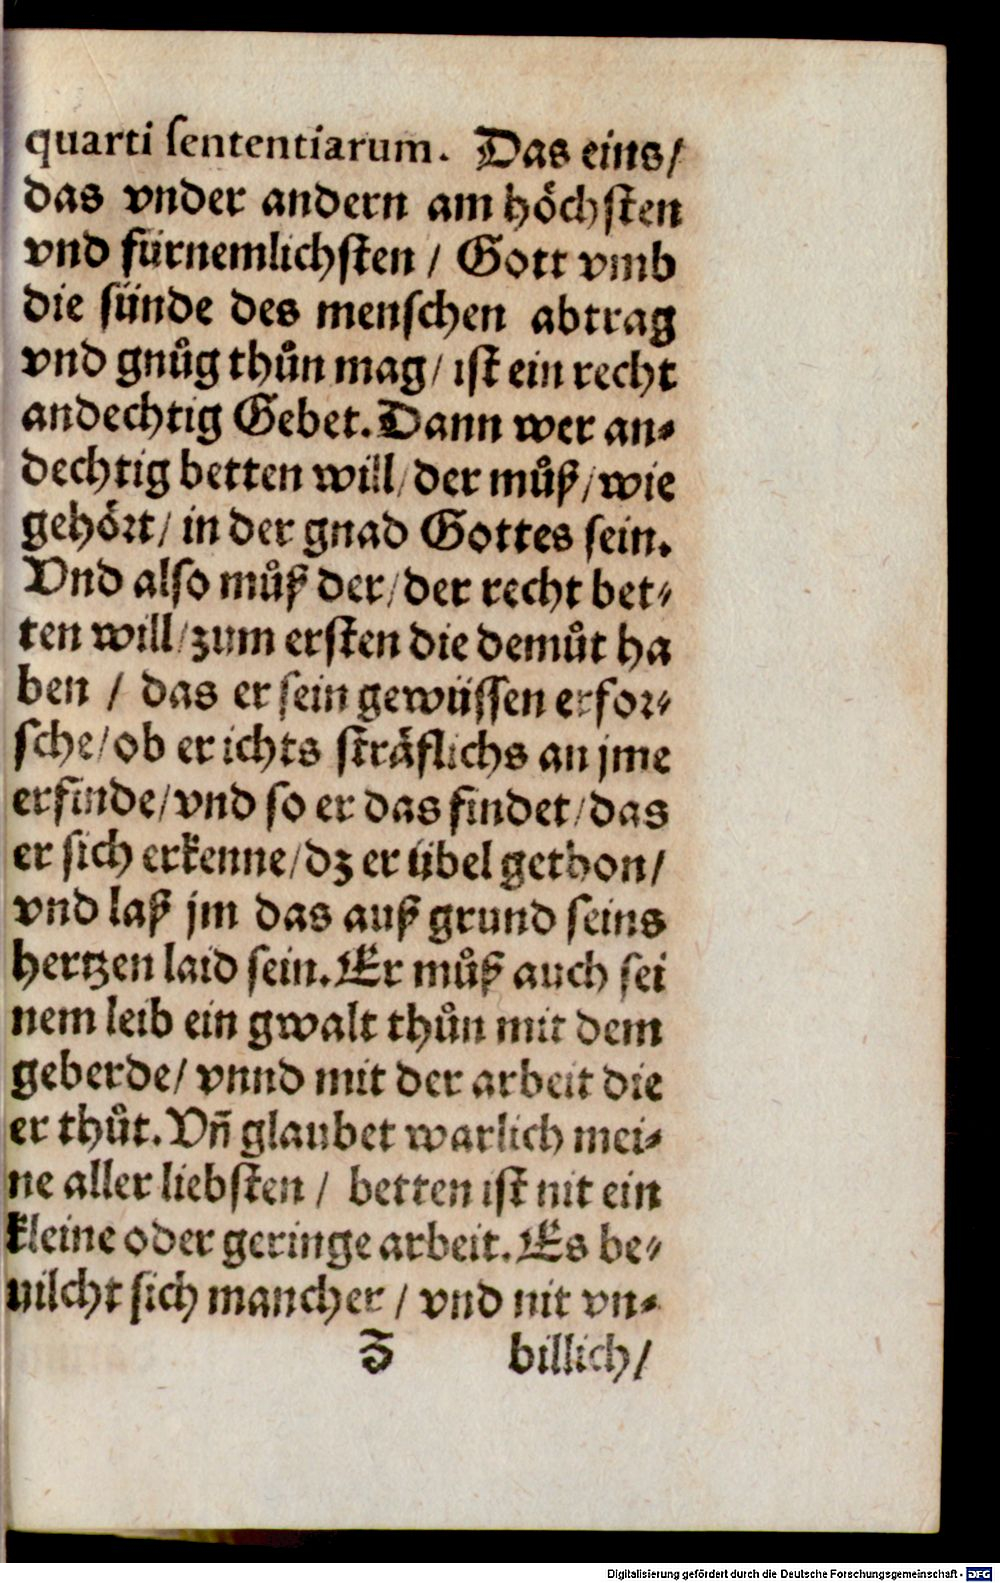 quarti ſententiarum. Das eins/
das vnder andern am höchſten
vnd fürnemlichſten / Gott vmb
die ſünde des menſchen abtrag
vnd gnůg thůn mag/ iſt ein recht
andechtig Gebet. Dann wer an⸗
dechtig betten will/ der můß/ wie
gehört/ in der gnad Gottes ſein.
Vnd alſo můß der/ der recht bet⸗
ten will/ zum erſten die demůt ha
ben / das er ſein gewüſſen erfor⸗
ſche/ ob er ichts ſträflichs an jme
erfinde/ vnd ſo er das findet/ das
er ſich erkenne/ dz er übel gethon/
vnd laß jm das auß grund ſeins
hertzen laid ſein. Er můß auch ſei
nem leib ein gwalt thůn mit dem
geberde/ vnnd mit der arbeit die
er thůt. Vñ glaubet warlich mei⸗
ne aller liebſten / betten iſt nit ein
kleine oder geringe arbeit. Es be⸗
uilcht ſich mancher / vnd nit vn⸗
Z billich/
Digitalisierung gefördert durch die Deutsche Forschungsgemeinschaft - DFG